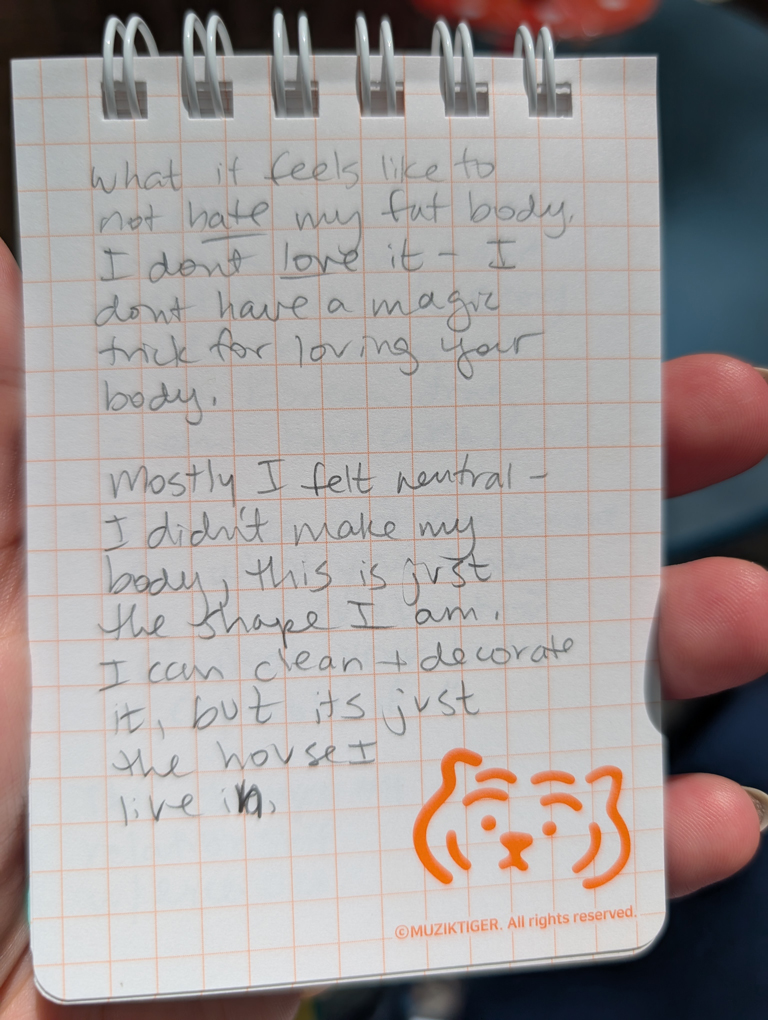 What it feels like to
not hate my fat body.
I dont love it – I
dont have a magic
trick for loving your
body.
Mostly I felt neutral –
I didn't make my
body, this is just
the shape I am.
I can clean + decorate
it, but its just
the house I
live in.
©MUZIKTIGER. All rights reserved.